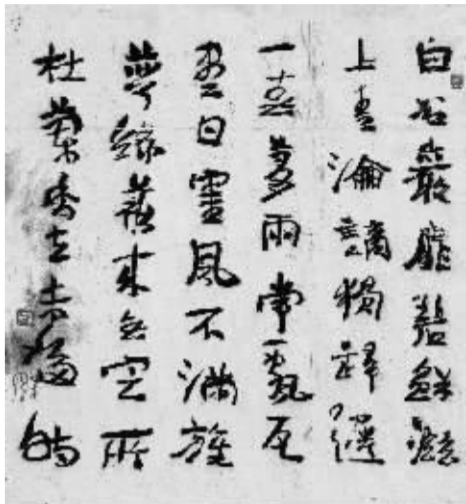 白石巖扉碧蘚滋
上清淪謫得歸遲
一春夢雨常飄瓦
盡日靈風不滿旗
萼綠華來無定所
杜蘭香去未移時